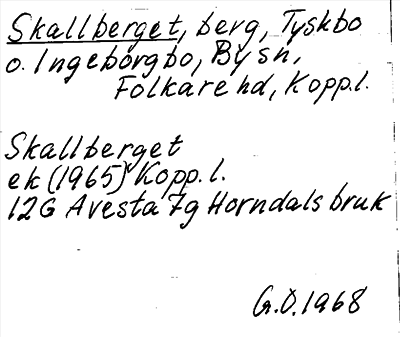 Skallberget, berg, Tyskbo
o. Ingeborgbo, By sn,
Folkare hd, Kopp.l.
Skallberget
ek (1965) Kopp. l.
12G Avesta 7g Horndals bruk
G.Ö.1968